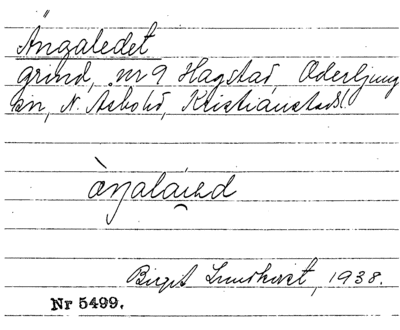 Ängaledet
grind, nr 9 Hagstad, Oderljunga
sn, N. Åsbo hd, Kristianstads l.
Birgit Lundkvist, 1938.
Nr 5499.